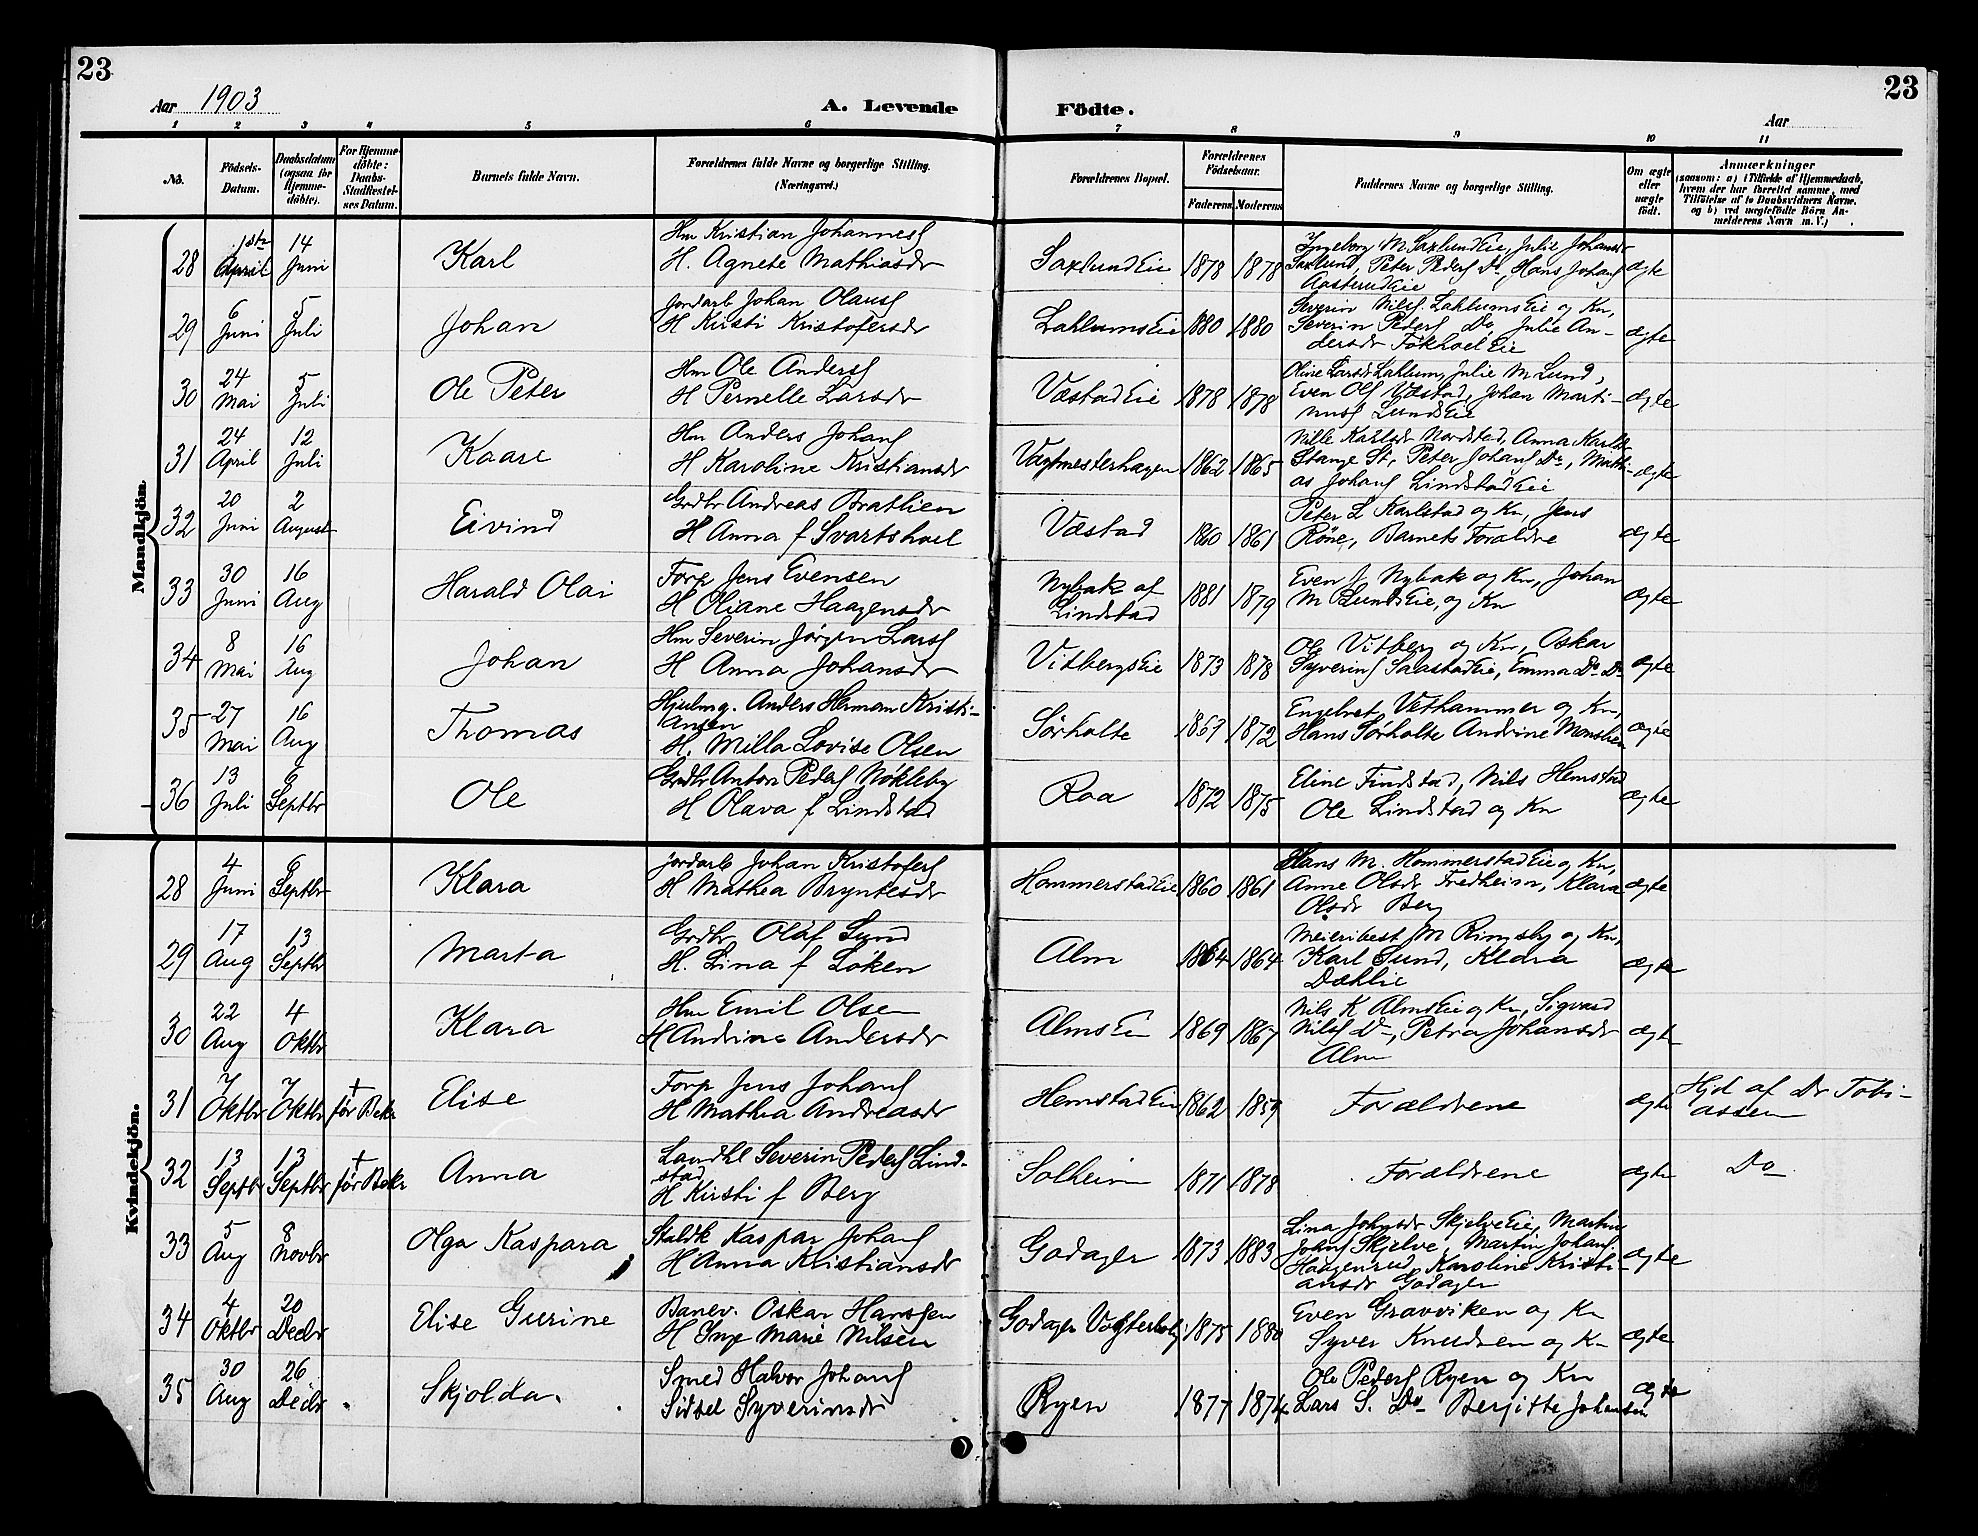 23
23
Aar 1903
A. Levende Födte.
Aar
1 2 3 4 5 6 7 8 9 10 11
No. Födsels-Datum. Daabsdatum (ogsaa for Hjemmedöbte). For Hjemmedöbte: Daabs-Stadfæstelses Datum. Barnets fulde Navn. Forældrenes fulde Navne og borgerlige Stilling. (Næringsvei.) Forældrenes Bopæl. Forældrenes Födselsaar. Faderens Moderens Faddernes Navne og borgerlige Stilling. Om ægte eller uægte födt. Anmærkninger (saasom: a) i Tilfælde af Hjemmedaab, hvem der har forrettet samme, med Tilföielse af to Daabsvidners Navne, og b) ved uægtefödte Börn Anmelderens Navn m. V.)
Mandkjön
28 1ste April 14 Juni Karl Hm Kristian Johannesf H. Agnete Mathiasdr SaxlundEie 1878 1878 Ingeborg M. SaxlundEie, Julie Johansdr Saxlund, Peter Pedersf Do, Hans Johansf AasterudEie ægte
29 6 Juni 5 Juli Johan Jordarb Johan Olausf H Kirsti Kristofersdr LahlumsEie 1880 1880 Severin Nilsf. LahlumsEie og Kn, Severin Pedersf Do, Julie Andersdr FokholEie ægte
30 24 Mai 5 Juli Ole Peter Hm Ole Andersf H Pernelle Larsdr VæstadEie 1878 1878 Oline Larsdr Lahlum, Julie M Lund, Even Olsf Væstad, Johan Martinusf LundsEie ægte
31 24 April 12 Juli Kaare Hm Anders Johansf H Karoline Kristiansdr Vagtmesterhagen 1862 1865 Nille Karlsdr Nordstad, Anna Karlsdr Stange St, Peter Johansf Do, Mathias Johansf LindstadEie ægte
32 20 Juni 2 August Eivind Grdbr Andreas Bratlien H Anna f Svartshoel Væstad 1860 1861 Peter L Karlstad og Kn, Jens Röne, Barnets Forældre ægte
33 30 Juni 16 Aug Harald Olai Forp Jens Evensen H Oliane Haagensdr Nybak af Lindstad 1881 1879 Even J Nybak og Kn, Johan M LundsEie, og Kn ægte
34 8 Mai 16 Aug Johan Hm Severin Jørgen Larsf H Anna Johansdr VitbergsEie 1873 1878 Ole Vitberg og Kn, Oskar Syverinsf SaastadEie, Emma Do Do ægte
35 27 Mai 16 Aug Thomas Hjulmg. Anders Herman Kristiansen H. Milla Lovise Olsen Sørholte 1869 1872 Engebret Vethammer og Kn, Hans Sørholte Andrine Monslien ægte
36 13 Juli 6 Septbr Ole Grdbr Anton Pedersf Nøkleby H Olava f Lindstad Roa 1872 1875 Eline Findstad, Nils Hemstad Ole Lindstad og Kn ægte
Kvindekjön.
28 4 Juni 6 Septbr Klara Jordarb Johan Kristofersf H Mathea Bryntesdr HommerstadEie 1860 1861 Hans M. HommerstadEie og Kn, Anne Olsdr Fredheim, Klara Olsdr Berg ægte
29 17 Aug 13 Septbr Marta Grdbr Olaf Sund H. Lina f Løken Alm 1864 1864 Meieribest M Ringsby og Kn, Karl Sund, Klara Dæhlie ægte
30 22 Aug 4 Oktbr Klara Hm Emil Olsen H Andrine Andersdr AlmsEie 1869 1867 Nils K AlmsEie og Kn, Sigvard Nilsf Do, Petra Johansdr Alm ægte
31 7 Oktbr 7 Oktbr † før Bekr Elise Forp Jens Johansf H Mathea Andreasdr HemstadEie 1862 1859 Forældrene ægte Hjd af Dr Tobiassen
32 13 Septbr 13 Septbr † før Bekr Anna Landhl Severin Pedersf Lindstad H Kirsti f Berg Solheim 1871 1878 Forældrene ægte Do
33 5 Aug 8 Novbr Olga Kaspara Staldk Kaspar Johansf H Anna Kristiansdr Godager 1873 1883 Lina Johnsdr SkjelveEie, Martin Johnsf Skjelve, Martin Johansf Haagenrud, Karoline Kristiansdr Godager ægte
34 4 Oktbr 20 Decbr Elise Gurine Banev. Oskar Hanssen H Inge Marie Nilsen Godager Vogterbolig 1875 1880 Even Gravviken og Kn Syver Knudsen og K ægte
35 30 Aug 26 Decbr Skjolda Smed Halvor Johansf Sidsel Syverinsdr Ryen 1877 1874 Ole Pedersf Ryen og Kn Lars S. Do Berjitte Johansen ægte